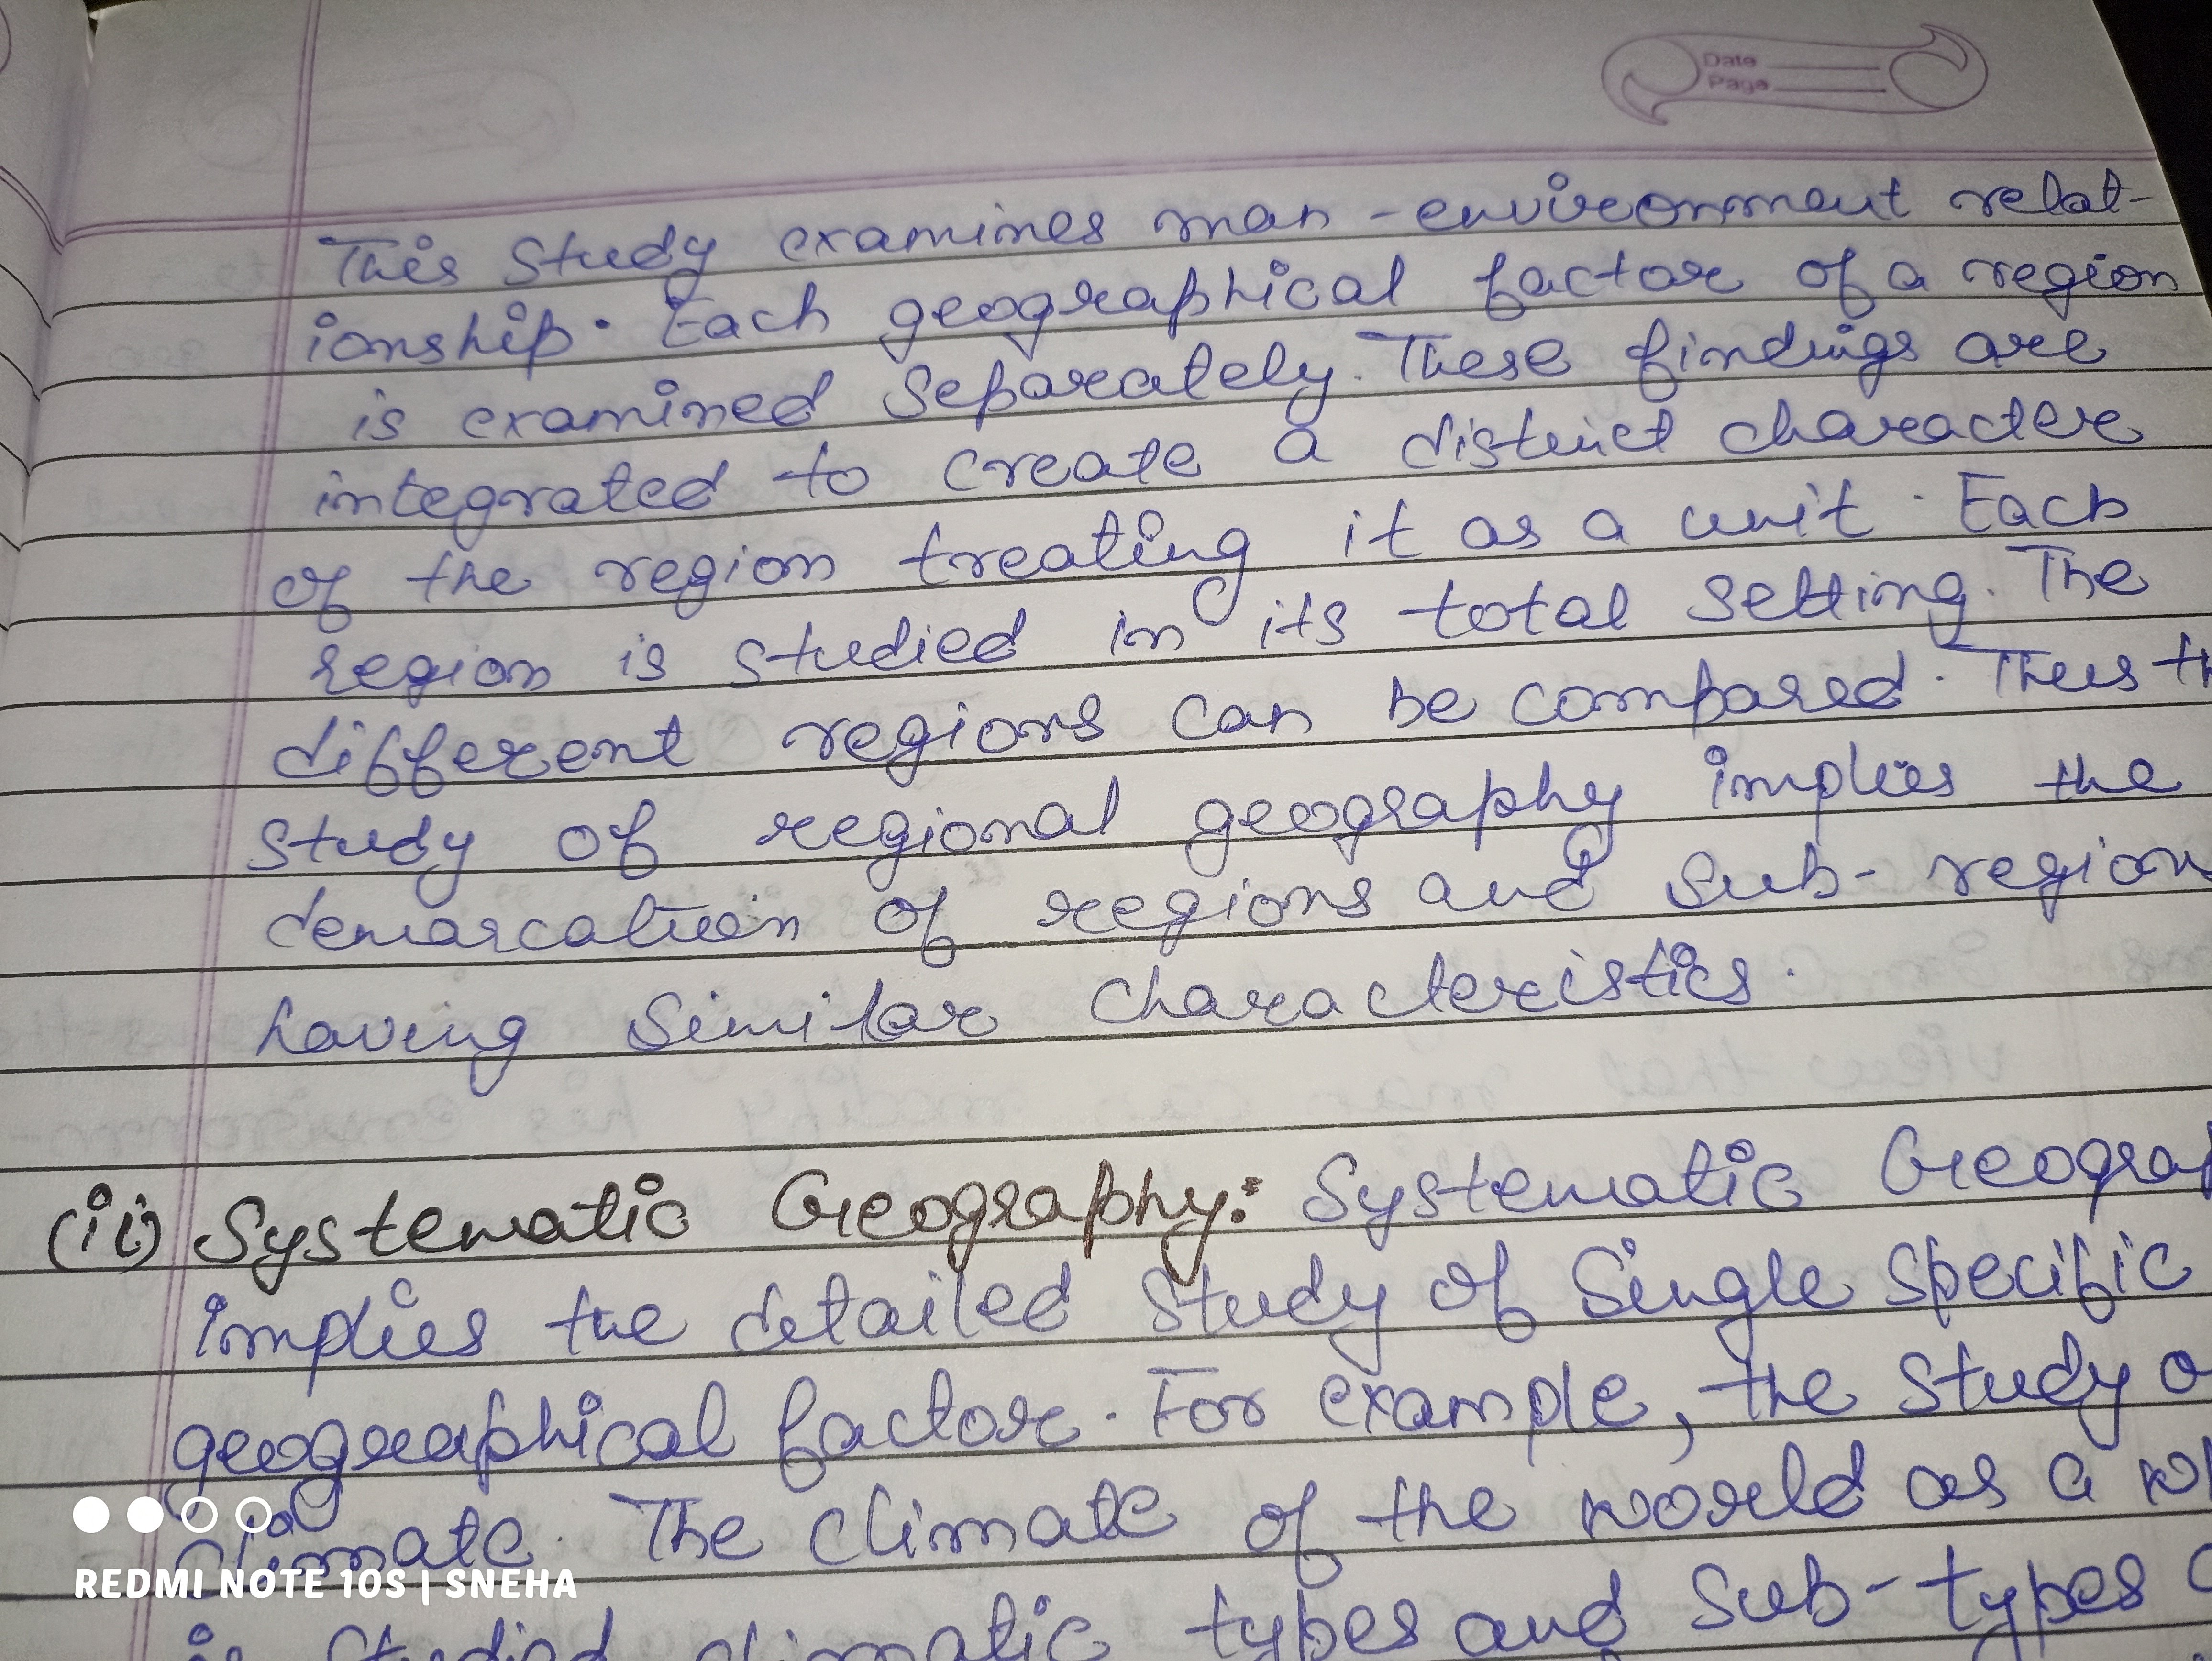 Date
Page
This study examines man-environment relat-
ionship. Each geographical factor of a region
is examined separately. These findings are
integrated to create a distinct character
of the region treating it as a unit. Each
region is studied in its total setting. The
different regions can be compared. Thus
study of regional geography implies the
demarcation of regions and sub-region
having similar characteristics.
(ii) Systematic Geography: Systematic Geograp
implies the detailed study of single specific
geographical factor. For example, the study
climate. The climate of the world as a
is studied climatic types and sub-types
REDMI NOTE 10S | SNEHA